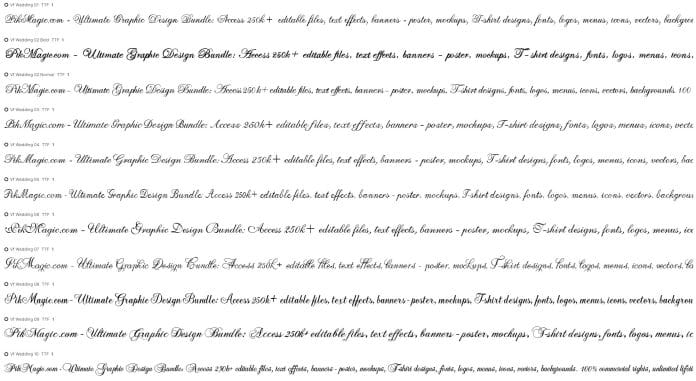 VF Wedding 01 TTF 1
PikMagic.com - Ultimate Graphic Design Bundle: Access 250k+ editable files, text effects, banners - poster, mockups, T-shirt designs, fonts, logos, menus, icons, vectors, backgrou
VF Wedding 02 Bold TTF 1
PikMagic.com - Ultimate Graphic Design Bundle: Access 250k+ editable files, text effects, banners - poster, mockups, T-shirt designs, fonts, logos, menus, icons,
VF Wedding 02 Normal TTF 1
PikMagic.com - Ultimate Graphic Design Bundle: Access 250k+ editable files, text effects, banners - poster, mockups, T-shirt designs, fonts, logos, menus, icons, vectors, backgrounds. 100
VF Wedding 03 TTF 1
PikMagic.com - Ultimate Graphic Design Bundle: Access 250k+ editable files, text effects, banners - poster, mockups, T-shirt designs, fonts, logos, menus, icons, vecto
VF Wedding 04 TTF 1
PikMagic.com - Ultimate Graphic Design Bundle: Access 250k+ editable files, text effects, banners - poster, mockups, T-shirt designs, fonts, logos, menus, icons, vectors, bac
VF Wedding 05 TTF 1
PikMagic.com - Ultimate Graphic Design Bundle: Access 250k+ editable files, text effects, banners - poster, mockups, T-shirt designs, fonts, logos, menus, icons, vectors, backgroun
VF Wedding 06 TTF 1
PikMagic.com - Ultimate Graphic Design Bundle: Access 250k+ editable files, text effects, banners - poster, mockups, T-shirt designs, fonts, logos, menus, vectors, ic
VF Wedding 07 TTF 1
PikMagic.com - Ultimate Graphic Design Bundle: Access 250k+ editable files, text effects, banners - poster, mockups, T-shirt designs, fonts, logos, menus, icons, vectors, b
VF Wedding 08 TTF 1
PikMagic.com - Ultimate Graphic Design Bundle: Access 250k+ editable files, text effects, banners - poster, mockups, T-shirt designs, fonts, logos, menus, icons, vectors, backgrou
VF Wedding 09 TTF 1
PikMagic.com - Ultimate Graphic Design Bundle: Access 250k+ editable files, text effects, banners - poster, mockups, T-shirt designs, fonts, logos, menus, ic
VF Wedding 10 TTF 1
PikMagic.com - Ultimate Graphic Design Bundle: Access 250k+ editable files, text effects, banners - poster, mockups, T-shirt designs, fonts, logos, menus, icons, vectors, backgrounds. 100% commercial rights, unlimited lifeti